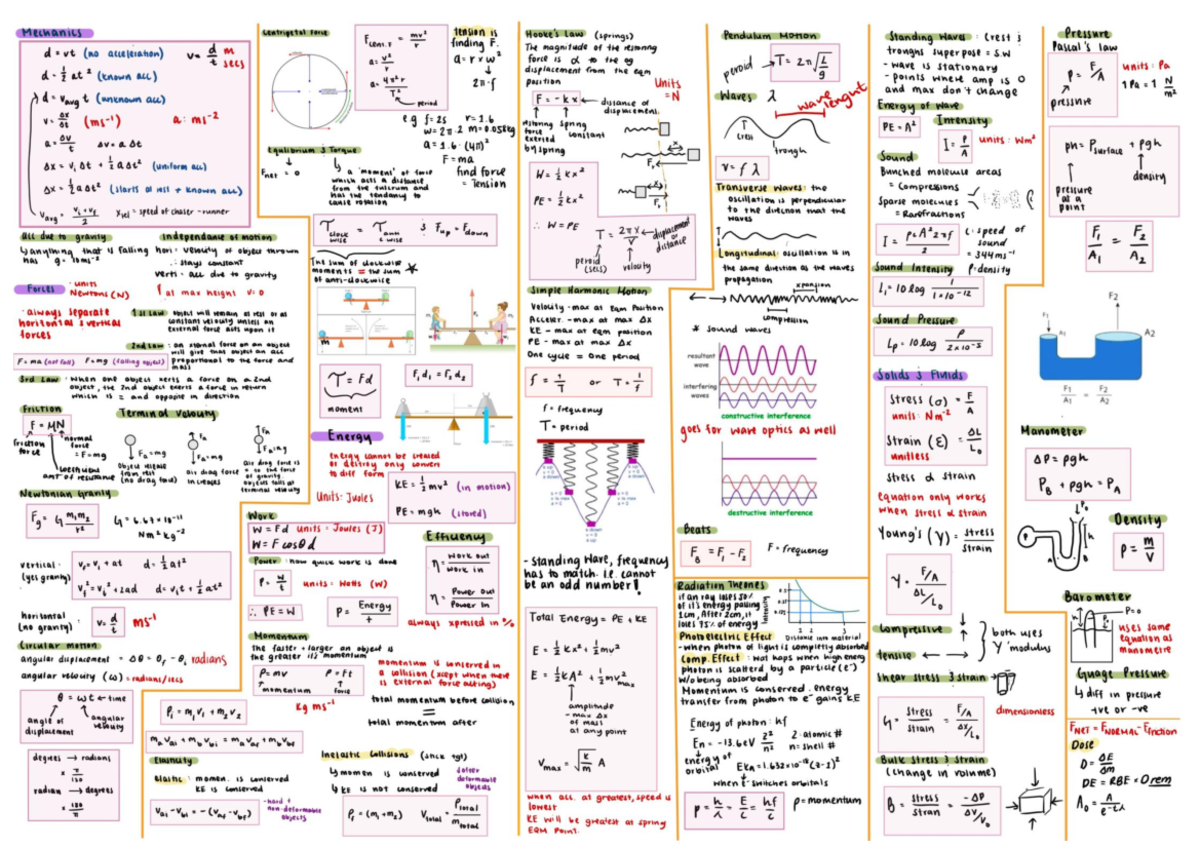 Mechanics
d = vt (no acceleration)
d = ½ at² (known acc)
d = v_avg t (unknown acc)
v = Δx/Δt (ms⁻¹) a: ms⁻²
a = ΔV/Δt Δv = a Δt
Δx = v_i Δt + ½ a Δt² (uniform acc)
Δx = ½ a Δt² (starts at rest + known acc)
v_avg = (v_i + v_f)/2 X_rel = speed of chaser - runner
v = d/t m secs
acc due to gravity
↳ anything that is falling has g = 10ms⁻²
Independance of motion
hori: velocity of object thrown ∴ stays constant
verti: acc due to gravity
at max height v = 0
Forces
· units Newtons (N)
· always separate horizontal & vertical forces
1st Law: object will remain at rest or at constant velocity unless an external force acts upon it
2nd Law: an external force on an object will give that object an acc proportional to the force and mass
F = ma (not fall) F = mg (falling object)
3rd Law: when one object xerts a force on a 2nd object, the 2nd object exerts a force in return which is = and opposite in direction
Friction
F = μN
friction force
normal force = F = mg
coefficient
amt of resistance
Terminal Velocity
F_g = mg
object release from rest (no drag force)
F_a
F_g = mg
air drag force increases
F_a
F_g = mg
air drag force is = to the force of gravity. objects falls at terminal velocity
Newtonian Gravity
F_g = G m₁m₂/r²
G = 6.67 × 10⁻¹¹ Nm²kg⁻²
vertical (yes gravity)
v_f = v_i + at d = ½ at²
v_f² = v_i² + 2ad d = v_i t + ½ at²
horizontal (no gravity):
v = d/t ms⁻¹
Circular motion
angular displacement = Δθ = θ_f - θ_i radians
angular velocity (ω) = radians/secs
θ = ωt ← time
angle of displacement
angular velocity
degrees → radians
× π/180
radian → degrees
× 180/π
Centripetal Force
F_cent.F = mv²/r
a = v²/r
a = 4π²r/T²
period
tension is finding F.
a = r × ω²
2π·f
e.g f = 2s r = 1.6
ω = 2π·2 m = 0.058kg
a = 1.6·(4π)²
F = ma
find force = tension
Equilibrium & Torque
F_net = 0
a 'moment' of force which acts a distance from the fulcrum and has the tendancy to cause rotation
τ clockwise = τ anti c wise & F_up = F_down
The sum of clockwise moments = the sum of anti-clockwise
τ = Fd
moment
F₁d₁ = F₂d₂
Energy
Energy cannot be created or destroy only convert to diff form
Units: Joules
KE = ½ mv² (in motion)
PE = mgh (stored)
Work
W = Fd Units: Joules (J)
W = F cosθ d
Power: how quick work is done
P = W/t units: Watts (W)
∴ PE = W
P = Energy/t
Efficiency
η = work out/work in
η = Power out/Power in
always xpressed in %
Momentum
The faster + larger an object is the greater it's momentum
P = mv
momentum
P = Ft
force
kg ms⁻¹
momentum is conserved in a collision (xcept when there is external force acting)
total momentum before collision
=
total momentum after
P_i = m₁v₁ + m₂v₂
m_a v_ai + m_b v_bi = m_a v_af + m_b v_bf
Elasticity
Elastic: momen. is conserved
KE is conserved
- hard & non-deformable objects
v_ai - v_bi = -(v_af - v_bf)
Inelastic Collisions (stick tgt)
↳ momen is conserved
↳ KE is not conserved
softer deformable objects
P_f = (m₁ + m₂) V_total = P_total/m_total
Hooke's Law (springs)
The magnitude of the restoring force is α to the eq displacement from the eqm position
Units = N
F = -kx ← distance of displacement
restoring force exerted by spring
spring constant
W = ½ kx²
PE = ½ kx²
∴ W = PE
T = 2πx/v
displacement or distance
period (secs)
velocity
Simple Harmonic Motion
Velocity - max at Eqm Position
Acceler. - max at max Δx
KE - max at eqm position
PE - max at max Δx
One cycle = One period
f = 1/T or T = 1/f
f = frequency
T = period
- standing wave, frequency has to match. I.E. cannot be an odd number!
Total Energy = PE + KE
E = ½kx² + ½mv²
E = ½kA² + ½mv²max
amplitude - max Δx of mass at any point
V_max = √(k/m) A
when acc. at greatest, speed is lowest
KE will be greatest at spring EQM POINT.
Pendulum Motion
period
T = 2π√(L/g)
Waves λ
wave lenght
crest
trough
v = fλ
Transverse Waves: the oscillation is perpendicular to the direction that the waves
Longitudinal: oscillation is in the same direction as the waves propagation
expansion
compression
* sound waves
resultant wave
interfering waves
constructive interference
goes for wave optics as well
destructive interference
Beats
F_B = F₁ - F₂ F = frequency
Radiation Theories
if an ray loses 50% of it's energy passing 1cm, After 2cm, it loses 75% of energy
Intensity
Distance into material
Photoelectric Effect
- when photon of light is completly absorbed
Comp. Effect: that haps when high energy photon is scatterd by a particle (e⁻) w/o being absorbed
Momentum is conserved. energy transfer from photon to e⁻ gains KE
Energy of photon: hf
E_n = -13.6eV Z²/n²
Z: atomic #
n = shell #
energy of orbital
when e⁻ switches orbitals
p = h/λ = E/c = hf/c p = momentum
Standing Waves: crest & troughs superpose = S.W
- wave is stationary
- points where amp is 0 and max don't change
Energy of Wave
PE = A²
Intensity
I = P/A units: Wm²
Sound
Bunched molecule areas = Compressions
Sparse molecules = Rarefractions
I = ρcA²2πf/2
c: speed of sound = 344ms⁻¹
ρ: density
Sound Intensity
L_I = 10 log I/(1×10⁻¹²)
Sound Pressure
Lp = 10 log P/(2×10⁻⁵)
Solids & Fluids
Stress (σ) = F/A
units: Nm⁻²
Strain (ε) = ΔL/L₀
unitless
stress α strain
equation only works when stress α strain
Young's (Y) = stress/strain
Y = (F/A)/(ΔL/L₀)
Compressive ↑
tensile
both uses Y modulus
Shear stress & strain
G = stress/strain = (F/A)/(ΔX/L₀)
dimensionless
Bulk stress & strain
(change in volume)
B = stress/strain = -ΔP/(ΔV/V₀)
Pressure
Pascal's law
P = F/A
pressure
units: Pa
1Pa = 1 N/m²
ph = Psurface + ρgh
pressure at a point
density
F₁/A₁ = F₂/A₂
F1
F2
A1
A2
F1/A1 = F2/A2
Manometer
ΔP = ρgh
P_B + ρgh = P_A
Density
ρ = m/V
Barometer
P=0
uses same equation as manometre
Guage Pressure
↳ diff in pressure
+ve or -ve
F_NET = F_NORMAL - F_friction
Dose
D = ΔE/Δm
DE = RBE × D rem
A₀ = A/e^-tλ